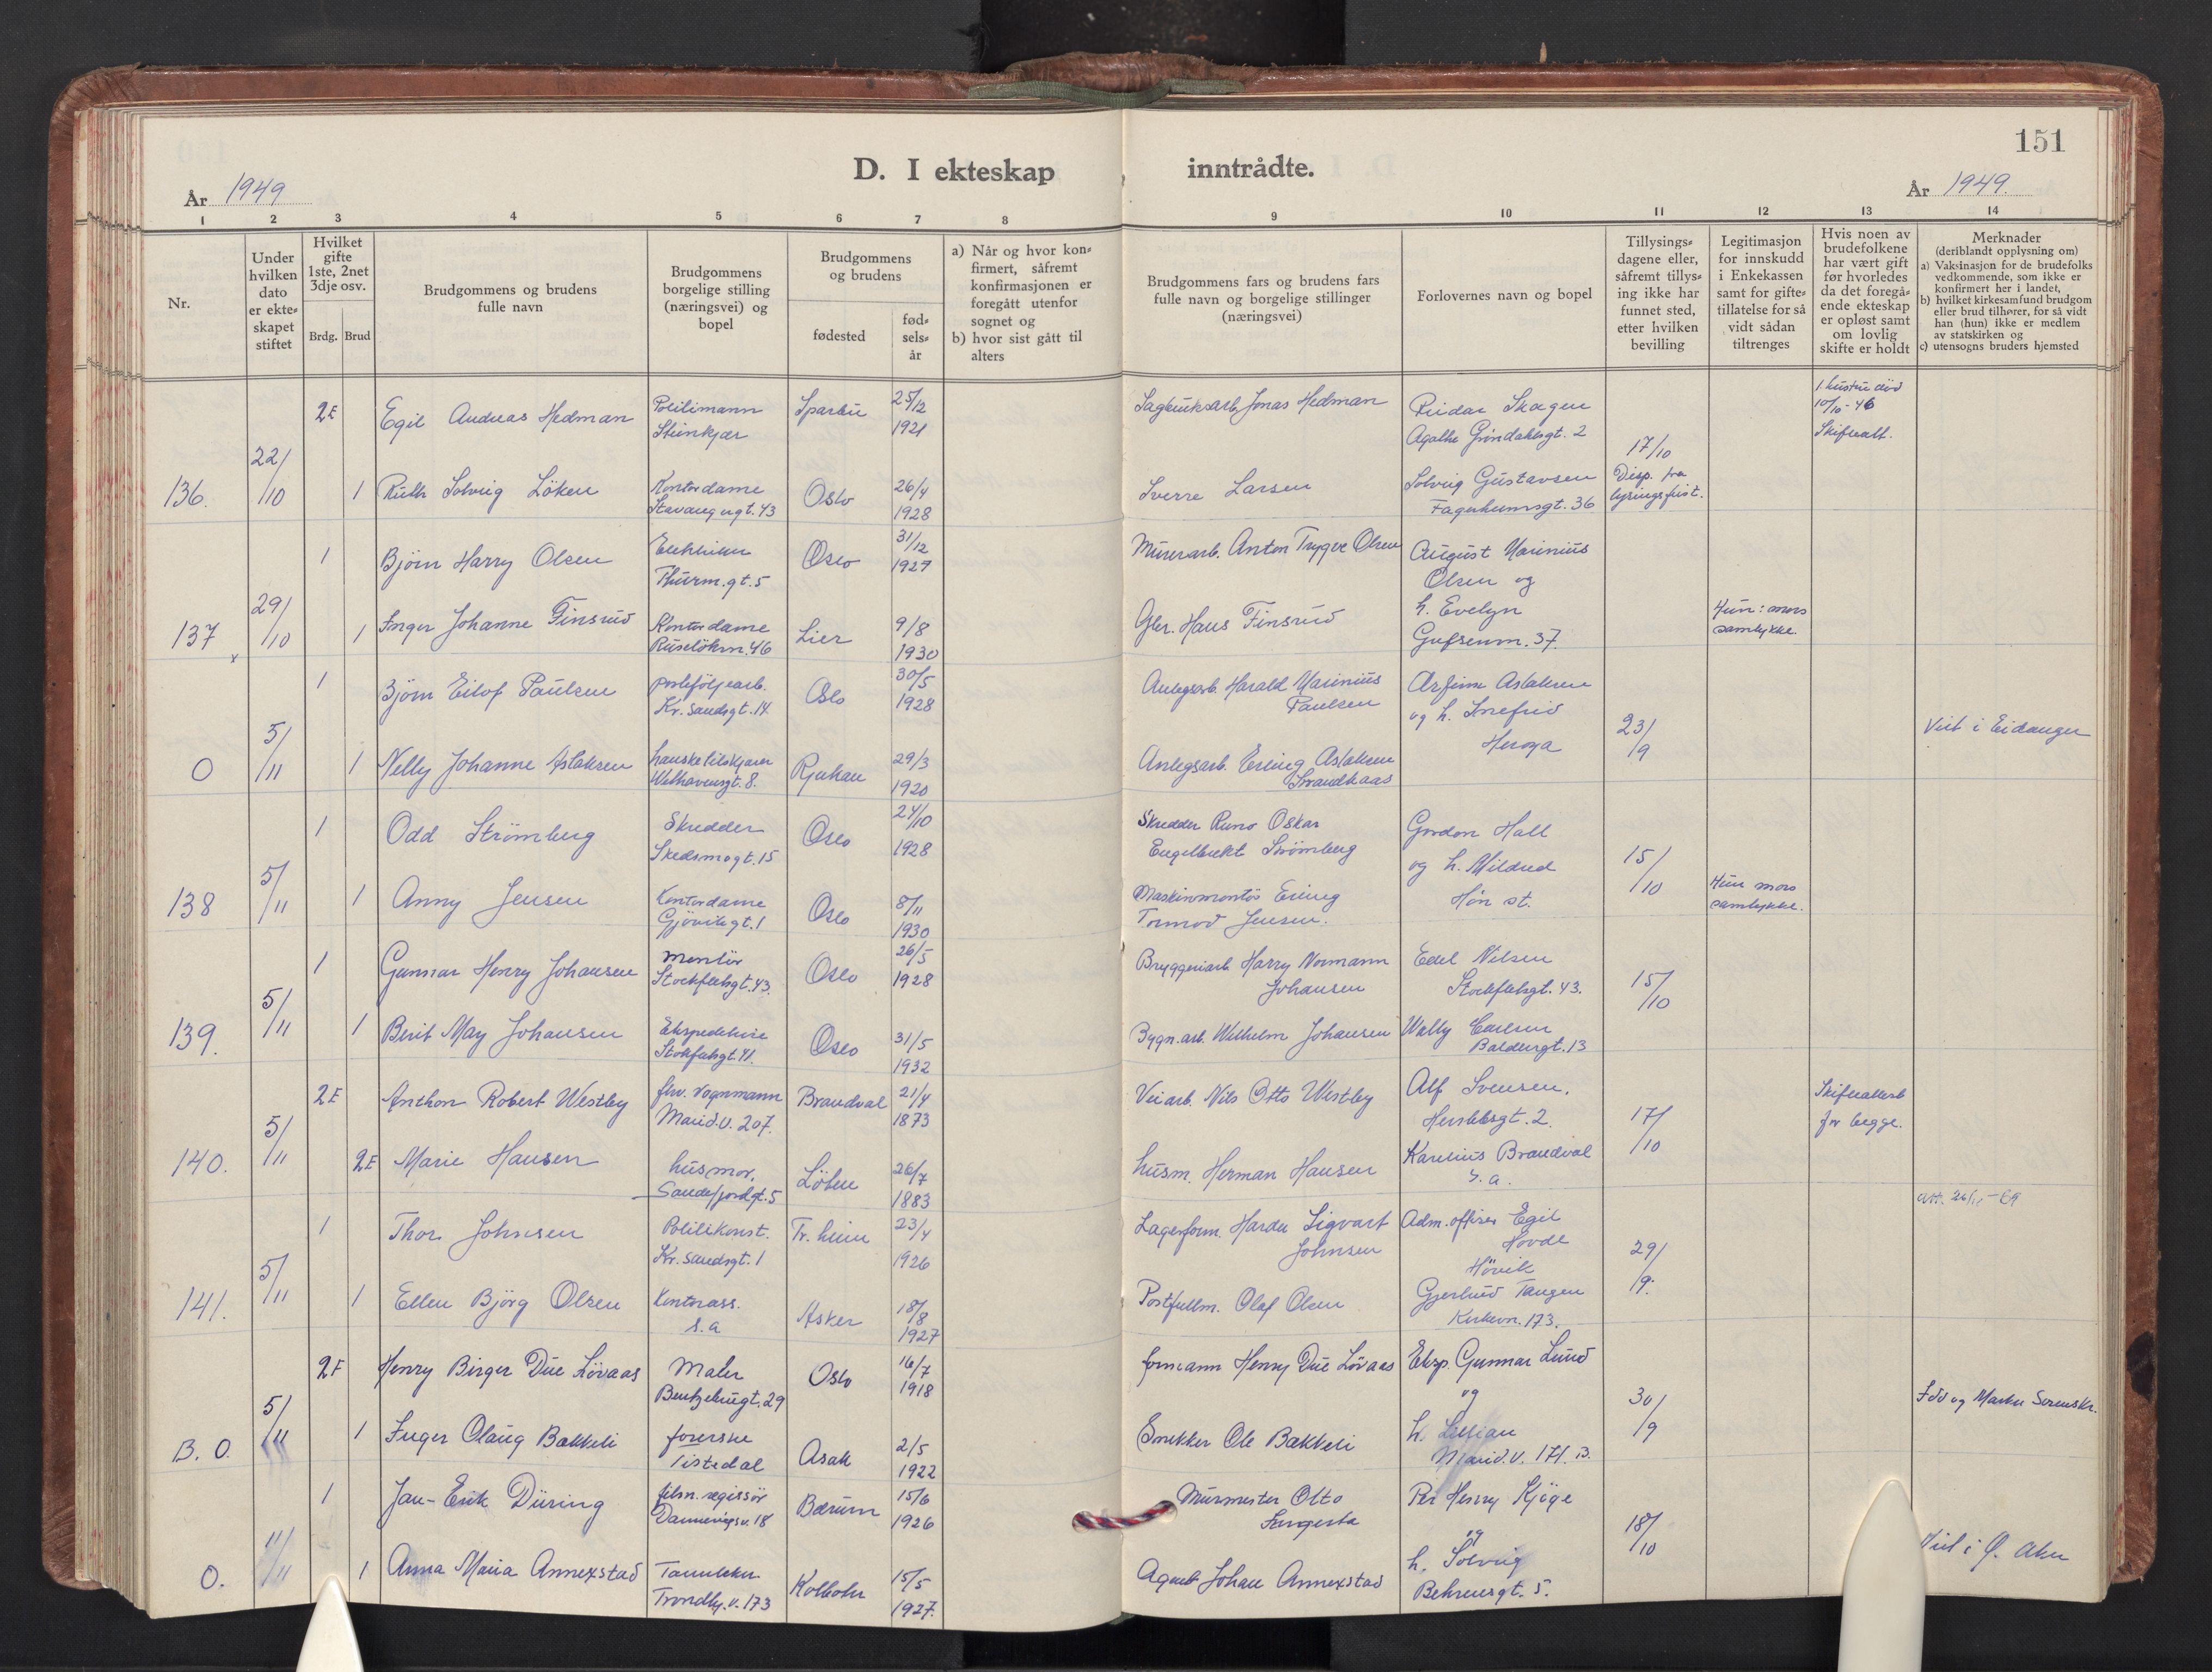 151
D. I ekteskap inntrådte.
År 1949
År 1949.
1 2 3 4 5 6 7 8 9 10 11 12 13 14
Nr.
Under hvilken dato er ekte- skapet stiftet
Hvilket gifte 1ste, 2net 3dje osv.
Brdg. Brud
Brudgommens og brudens fulle navn
Brudgommens borgelige stilling (næringsvei) og bopel
Brudgommens og brudens
fødested
fød- sels- år
a) Når og hvor kon- firmert, såfremt konfirmasjonen er foregått utenfor sognet og
b) hvor sist gått til alters
Brudgommens fars og brudens fars fulle navn og borgelige stillinger (næringsvei)
Forlovernes navn og bopel
Tillysings- dagene eller, såfremt tillys- ing ikke har funnet sted, etter hvilken bevilling
Legitimasjon for innskudd i Enkekassen samt for gifte- tillatelse for så vidt sådan tiltrenges
Hvis noen av brudefolkene har vært gift før hvorledes da det foregå- ende ekteskap er opløst samt om lovlig skifte er holdt
Merknader (deriblandt opplysning om)
a) Vaksinasjon for de brudefolks vedkommende, som ikke er konfirmert her i landet,
b) hvilket kirkesamfund brudgom eller brud tilhører, for så vidt han (hun) ikke er medlem av statskirken og
c) utensogns bruders hjemsted
2E Egil Andreas Hedman Politimann Steinkjær Sparbu 25/12 1921 Sagbruksarb. Jonas Hedman Reidar Skogen Agathe Grøndahlsgt. 2 1. hustru død 10/10-46
136. 22/10 1 Ruth Solveig Löken Kontordame Stavangergt. 43 Oslo 26/4 1928 Sverre Larsen Solveig Gustavsen Fagerheimsgt. 36 17/10 Disp. fra lysingsfrist.
1 Björn Harry Olsen Thurm.gt. 5 Oslo 31/12 1927 Murerarb. Anton Trygve Olsen August Marinius Olsen og
137 29/10 1 Inger Johanne Finsrud Kontordame Ruselökvn. 46 Lier 9/8 1930 Gbr. Hans Finsrud h. Evelyn 37. Hun: mors samtykke.
x
1 Björn Eilof Paulsen porteföljearb. Kr.sandsgt. 14 Oslo 30/5 1928 Anlegsarb. Harald Marinius Paulsen Arfinn Aslaksen og h. Snefrid
O 5/11 1 Nelly Johanne Aslaksen hansketilskjærer Welhavensgt. 8. Rjukan 29/3 1920 Anlegsarb. Erling Aslaksen Herøya 23/9 Viet i Eidanger
1 Odd Strömberg Skredder Skedsmogt. 15 Oslo 24/10 1928 Skredder Runo Oskar Engelbrekt Strömberg Gordon Hall og h. Mildred
138 5/11 1 Anny Jensen Kontordame Gjövikgt. 1 Oslo 8/11 1930 Maskinmontör Erling Tormod Jensen. Høn st. 15/10 Hun mors samtykke.
1 Gunnar Henry Johansen Montör Stockflethsgt. 43. Oslo 26/5 1928 Bryggeriarb. Harry Normann Johansen Edel Nilsen Stockflethsgt. 43.
139. 5/11 1 Berit May Johansen Ekspeditrise Stokflethsgt. 41. Oslo 31/5 1932 Bygn.arb. Wilhelm Johansen Wally Carlsen Baldersgt. 13 15/10
2E Anthon Robert Westby fhv. vognmann Marid.v. 207. Brandval 21/4 1873 Veiarb. Nils Otto Westby Alf Svensen, Herslebsgt. 2. Skifteattest for begge.
140. 5/11 2E Marie Hansen husmor, Sandefjordgt. 5 Löten 26/7 1883 husm. Herman Hansen Karelius Brandval s.a. 17/10
1 Thor Johnsen Politikonst. Kr.sandsgt. 1 Tr.heim 23/4 1926 Lagerform. Sigvart Johnsen Adm.offiser Egil Hovde Høvik
141. 5/11 1 Ellen Björg Olsen Kontorass. s.a Asker 18/8 1927 Postfullm. Olaf Olsen Gjertrud Tangen Kirkevn. 173. 29/9.
2F Henry Birger Due Lövaas Maler Bentsebrugt. 29 Oslo 16/7 1918 formann Henry Due Lövaas Eksp. Gunnar Lund og
B. O. 5/11 1 Inger Olaug Bakkeli Tistedal Asak 2/5 1922 Snekker Ole Bakkeli h. Lillian Marid.v. 171. B. 30/9 Idd og Marker Sorenskr.
1 Jan-Erik Düring film.regissör 18 Bærum 15/6 1926 Murmester Otto Per Henry Kjöge og
O. 11/11 1 Anna Maria Annexstad Trondhj.v. 173 Kolbotn 15/5 1927. Agent Johan Annexstad h. Solveig Behrensgt. 5. 18/10 Viet i Ø. Aker